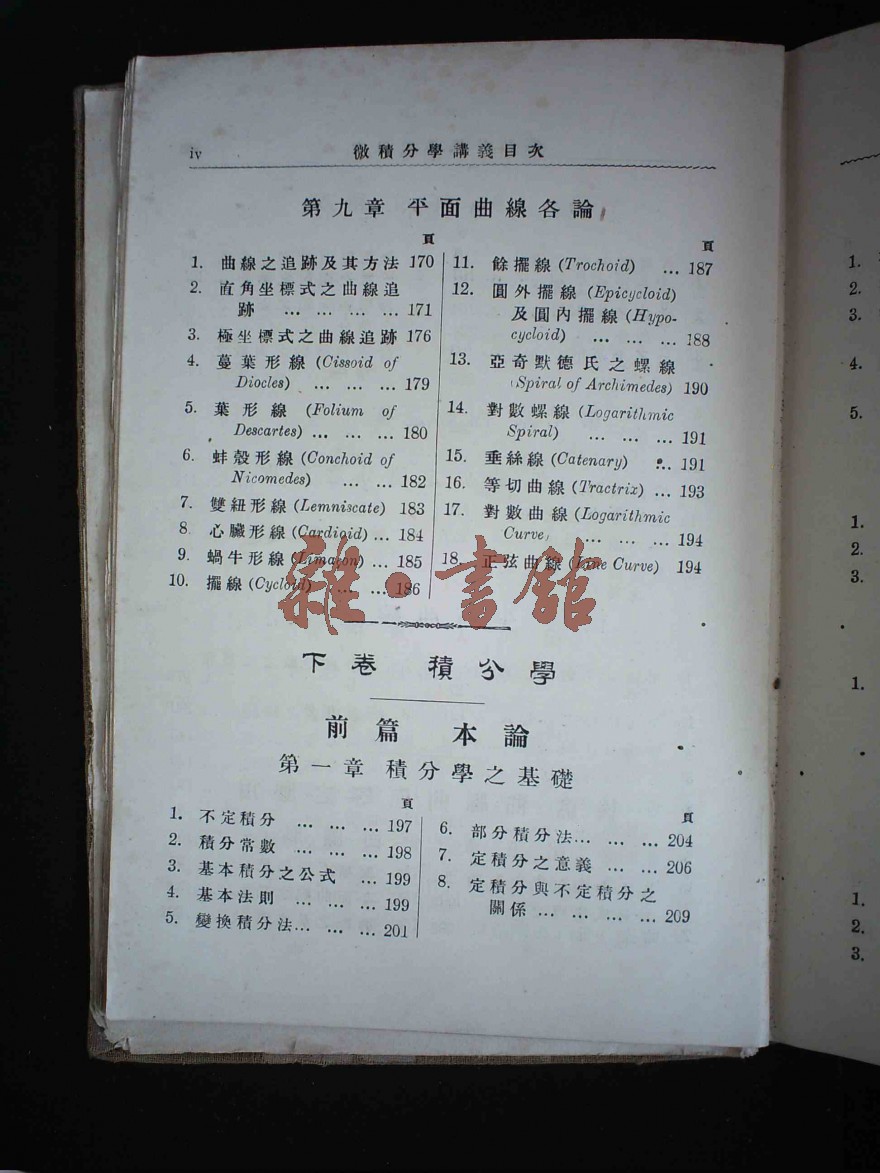 iv 微積分學講義目次
第九章 平面曲線各論
頁
1. 曲線之追跡及其方法 170
2. 直角坐標式之曲線追
跡 ... ... ... ... 171
3. 極坐標式之曲線追跡 176
4. 蔓葉形線 (Cissoid of
Diocles) ... ... ... 179
5. 葉形線 (Folium of
Descartes) ... ... ... 180
6. 蚌殼形線 (Conchoid of
Nicomedes) ... ... 182
7. 雙紐形線 (Lemniscate) 183
8 心臟形線 (Cardioid) ... 184
9. 蝸牛形線 (Limaçon) ... 185
10. 擺線 (Cycloid) ... ... 186
頁
11. 餘擺線 (Trochoid) ... 187
12. 圓外擺線 (Epicycloid)
及圓內擺線 (Hypo-
cycloid) ... ... ... 188
13. 亞奇默德氏之螺線
(Spiral of Archimedes) 190
14. 對數螺線 (Logarithmic
Spiral) ... ... ... 191
15. 垂絲線 (Catenary) ... 191
16. 等切曲線 (Tractrix) ... 193
17. 對數曲線 (Logarithmic
Curve) ... ... ... 194
18. 正弦曲線 (Sine Curve) 194
雜·書館
下卷 積分學
前篇 本論
第一章 積分學之基礎
頁
1. 不定積分 ... ... ... 197
2. 積分常數 ... ... ... 198
3. 基本積分之公式 ... 199
4. 基本法則 ... ... ... 199
5. 變換積分法... ... ... 201
頁
6. 部分積分法... ... ... 204
7. 定積分之意義 ... ... 206
8. 定積分與不定積分之
關係 ... ... ... ... 209
1.
2.
3.
4.
5.
1.
2.
3.
1.
1.
2.
3.